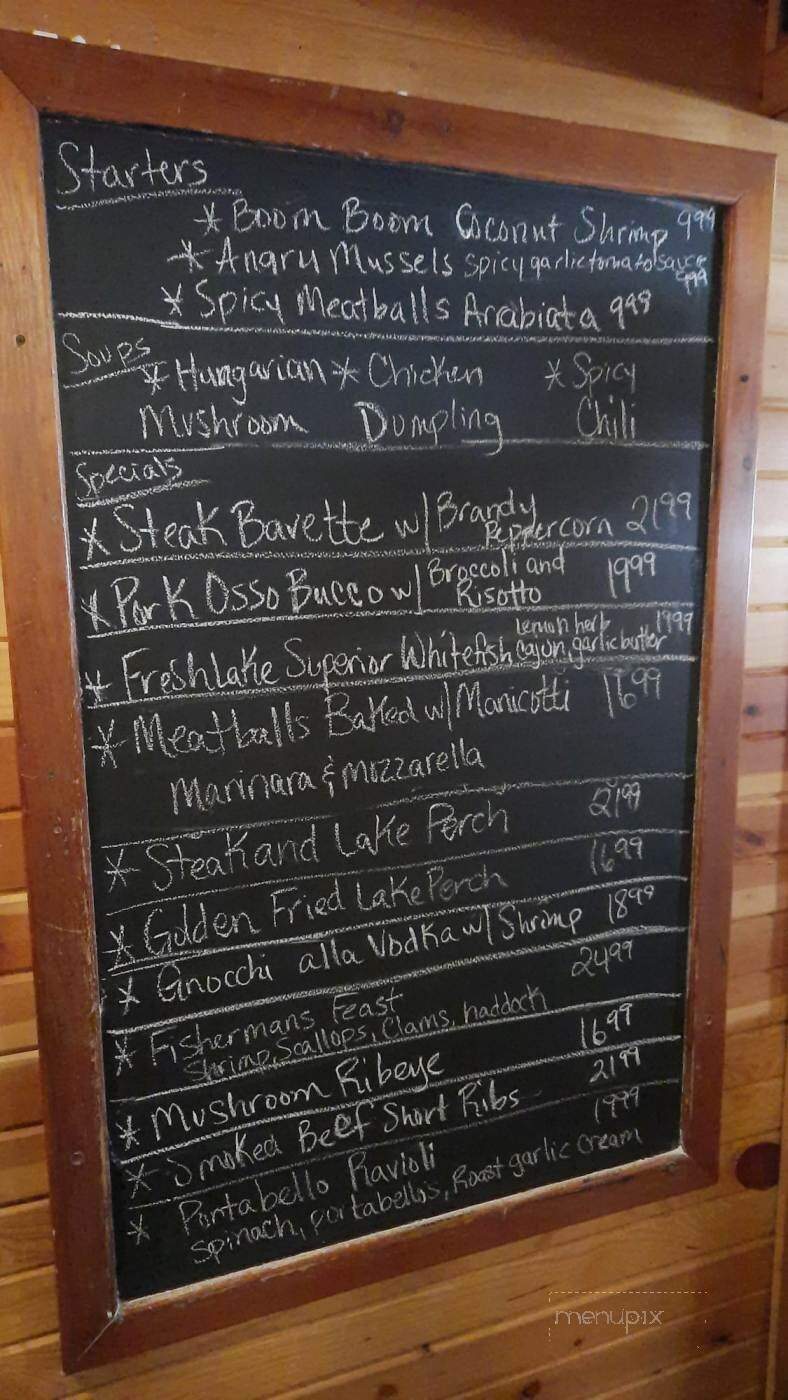 Starters
* Boom Boom Coconut Shrimp 999
* Angry Mussels spicy garlic tomato sauce
999
* Spicy Meatballs Arrabiata 999
Soups
* Hungarian * Chicken * Spicy
Mushroom Dumpling Chili
Specials
* Steak Bavette w/ Brandy Peppercorn 2199
* Pork Osso Bucco w/ Broccoli and Risotto 1999
lemon herb 1999
* Fresh Lake Superior Whitefish cajun, garlic butter
* Meatballs Baked w/ Manicotti 1699
Marinara & Mozzarella
* Steak and Lake Perch 2199
* Golden Fried Lake Perch 1699
* Gnocchi alla Vodka w/ Shrimp 1899
* Fishermans Feast 2499
Shrimp, Scallops, Clams, haddock
* Mushroom Ribeye 1699
* Smoked Beef Short Ribs 2199
* Portabello Ravioli 1999
Spinach, portabellos, Roast garlic cream
menupix